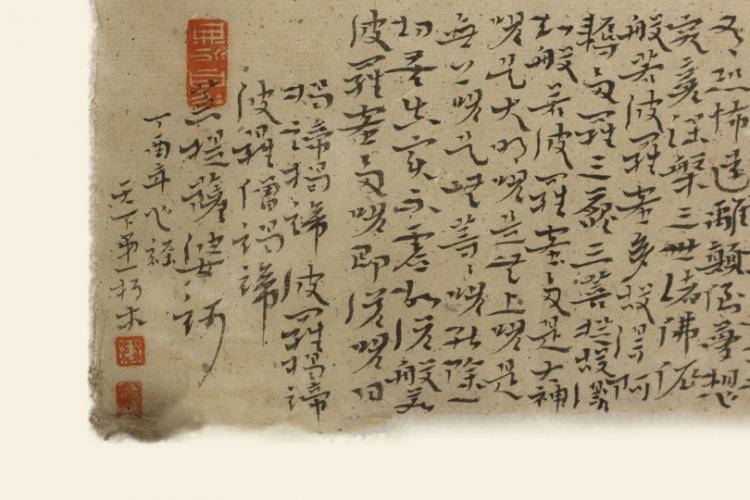 有恐怖遠離顛倒夢想
究竟涅槃三世諸佛依
般若波羅蜜多故得阿
耨多羅三藐三菩提故
知般若波羅蜜多是大神
咒是大明咒是无上咒是
無上咒是無等等咒能除一
切苦真實不虛故說般若
波羅蜜多咒即說咒曰
揭諦揭諦 波羅揭諦
波羅僧揭諦
菩提薩婆訶
丁酉年心經
天下第一朽木